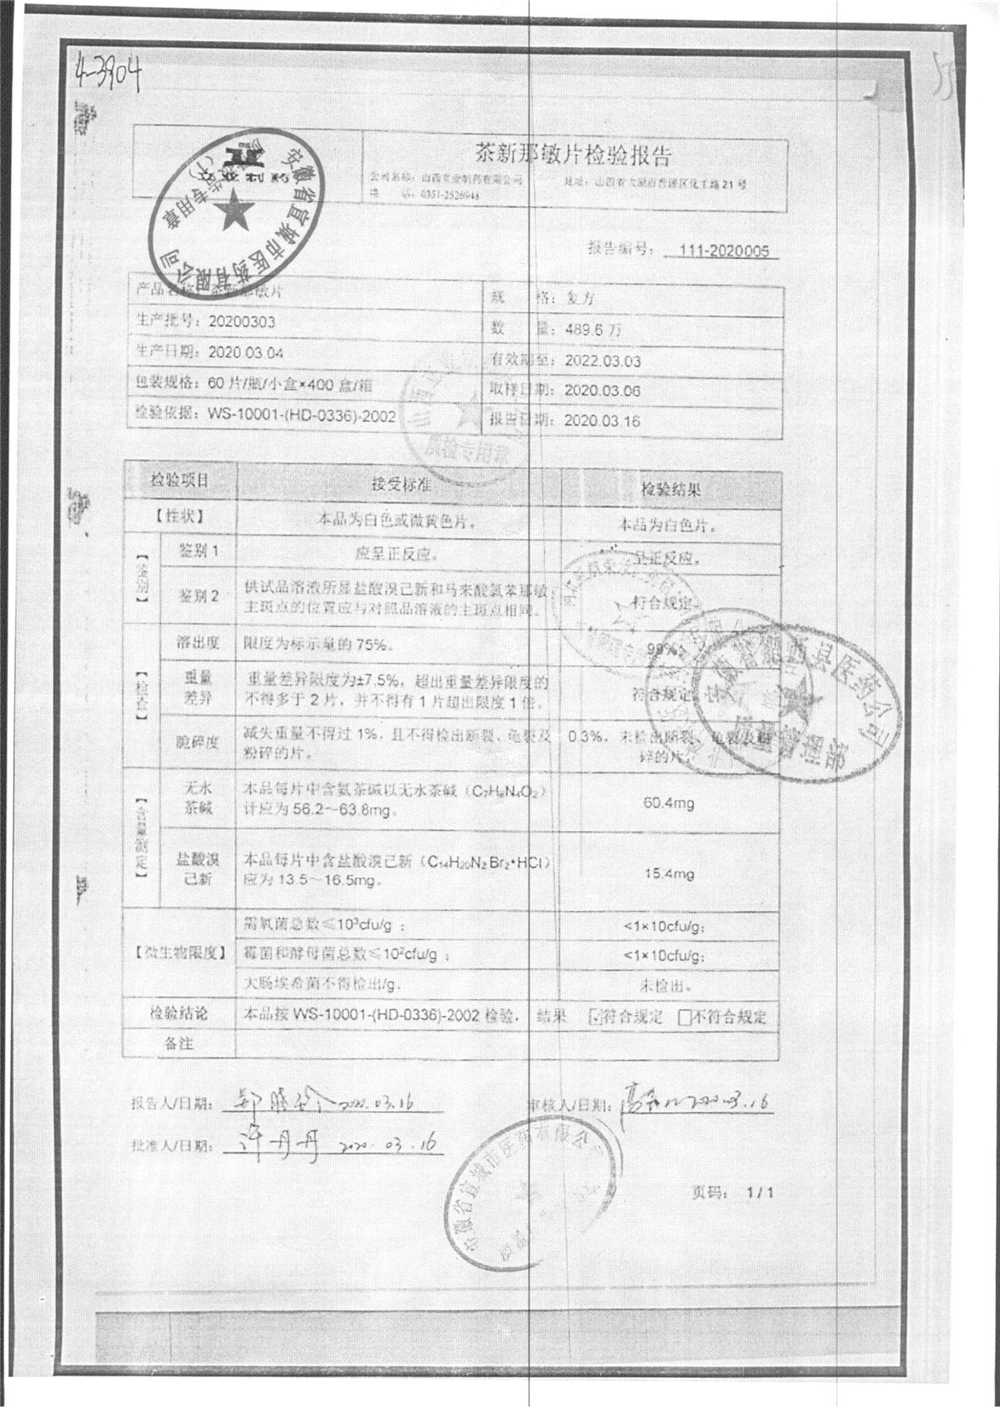 4-3904
茶新那敏片检验报告
立业制药
公司名称：山西立业制药有限公司
地址：山西省太原市晋源区化工路21号
电 话：0351-2526948
安徽省宣城市医药有限公司
专用章
(1)
报告编号：111-2020005
产品名称：茶新那敏片
规 格：复方
生产批号：20200303
数 量：489.6万
生产日期：2020.03.04
有效期至：2022.03.03
包装规格：60片/瓶/小盒×400盒/箱
取样日期：2020.03.06
检验依据：WS-10001-(HD-0336)-2002
报告日期：2020.03.16
质检专用章
检验项目 接受标准 检验结果
【性状】 本品为白色或微黄色片。 本品为白色片。
【鉴别】
鉴别1 应呈正反应。 呈正反应。
鉴别2 供试品溶液所显盐酸溴己新和马来酸氯苯那敏
主斑点的位置应与对照品溶液的主斑点相同。 符合规定。
【检查】
溶出度 限度为标示量的75%。 99%。
重量
差异
重量差异限度为±7.5%，超出重量差异限度的
不得多于2片，并不得有1片超出限度1倍。
符合规定。
脆碎度 减失重量不得过1%，且不得检出断裂、龟裂及
粉碎的片。
0.3%，未检出断裂、龟裂及粉
碎的片。
安徽省肥西县医药公司
【含量测定】
无水
茶碱
本品每片中含氨茶碱以无水茶碱（C₇H₈N₄O₂）
计应为56.2～63.8mg。
60.4mg
盐酸溴
己新
本品每片中含盐酸溴己新（C₁₄H₂₀N₂Br₂•HCl）
应为13.5～16.5mg。
15.4mg
【微生物限度】
需氧菌总数≤10³cfu/g；
<1×10cfu/g;
霉菌和酵母菌总数≤10²cfu/g；
<1×10cfu/g;
大肠埃希菌不得检出/g.
未检出。
检验结论 本品按WS-10001-(HD-0336)-2002检验， 结果 ☑符合规定 □不符合规定
备注
报告人/日期： 2020.03.16
审核人/日期： 2020.03.16
批准人/日期：许丹丹 2020.03.16
安徽省宣城市医药有限公
页码：1/1